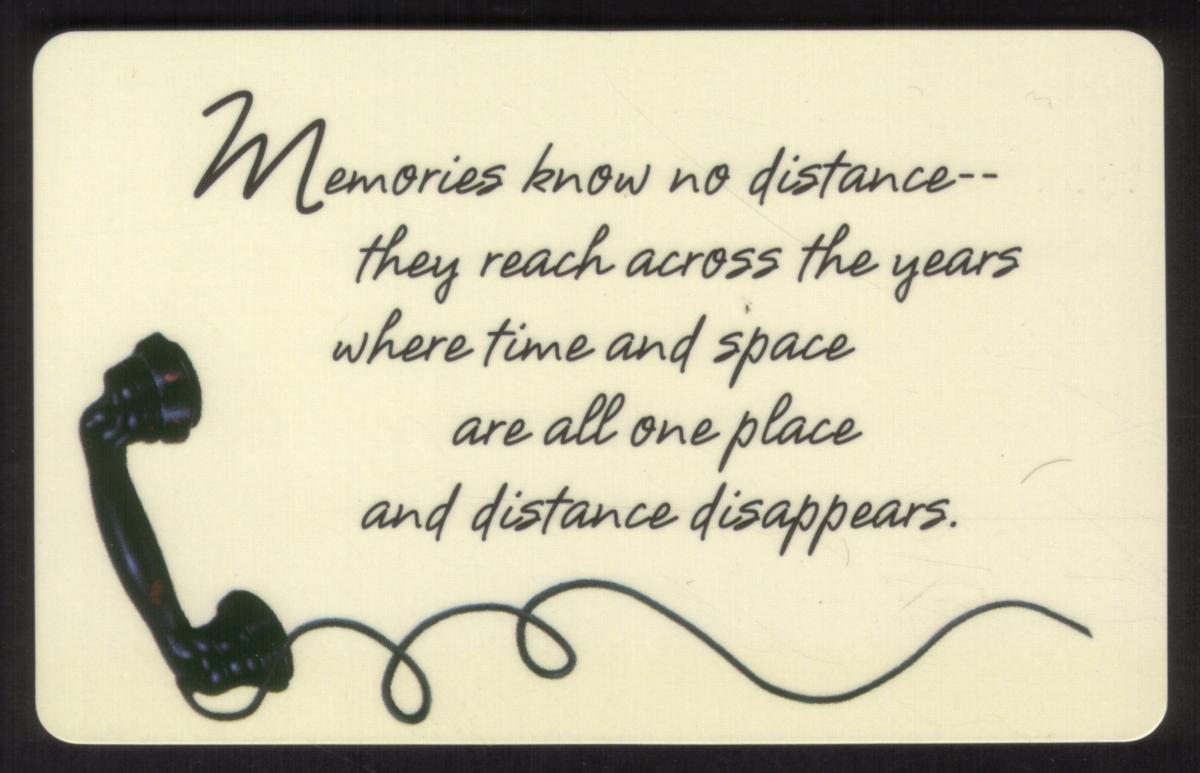 Memories know no distance--
they reach across the years
where time and space
are all one place
and distance disappears.